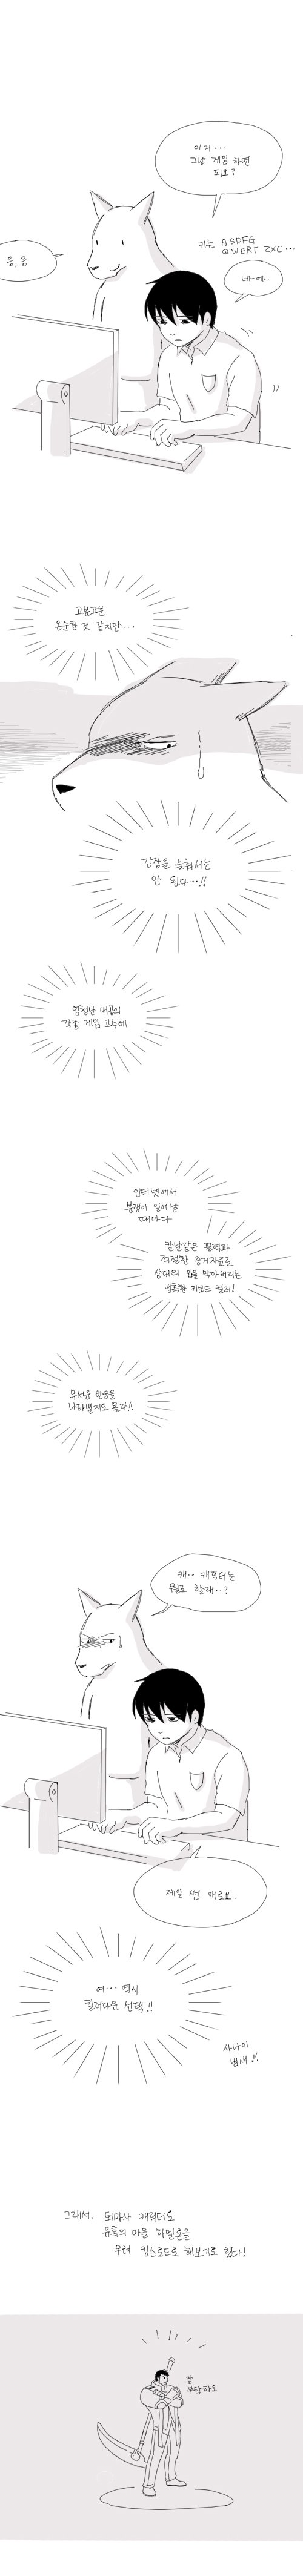 이거...
그냥 게임 하면
되요?
키는 ASDFG
QWERT ZXC...
응, 응
네-에...
고분고분
온순한 것 같지만...
긴장을 늦춰서는
안 된다...!!
엄청난 내공의
각종 게임 고수에
인터넷에서
분쟁이 일어날
때마다
칼날같은 필력과
적절한 증거자료로
상대의 입을 막아버리는
냉혹한 키보드 킬러!
무서운 반응을
나타낼지도 몰라!!
캐.. 캐릭터는
뭘로 할래..?
제일 쎈 애로요.
여... 역시
킬러다운 선택!!
사나이
냄새!!
그래서, 퇴마사 캐릭터로
유혹의 마을 하멜른을
무려 킹스로드로 해보기로 했다!
잘
부탁하오